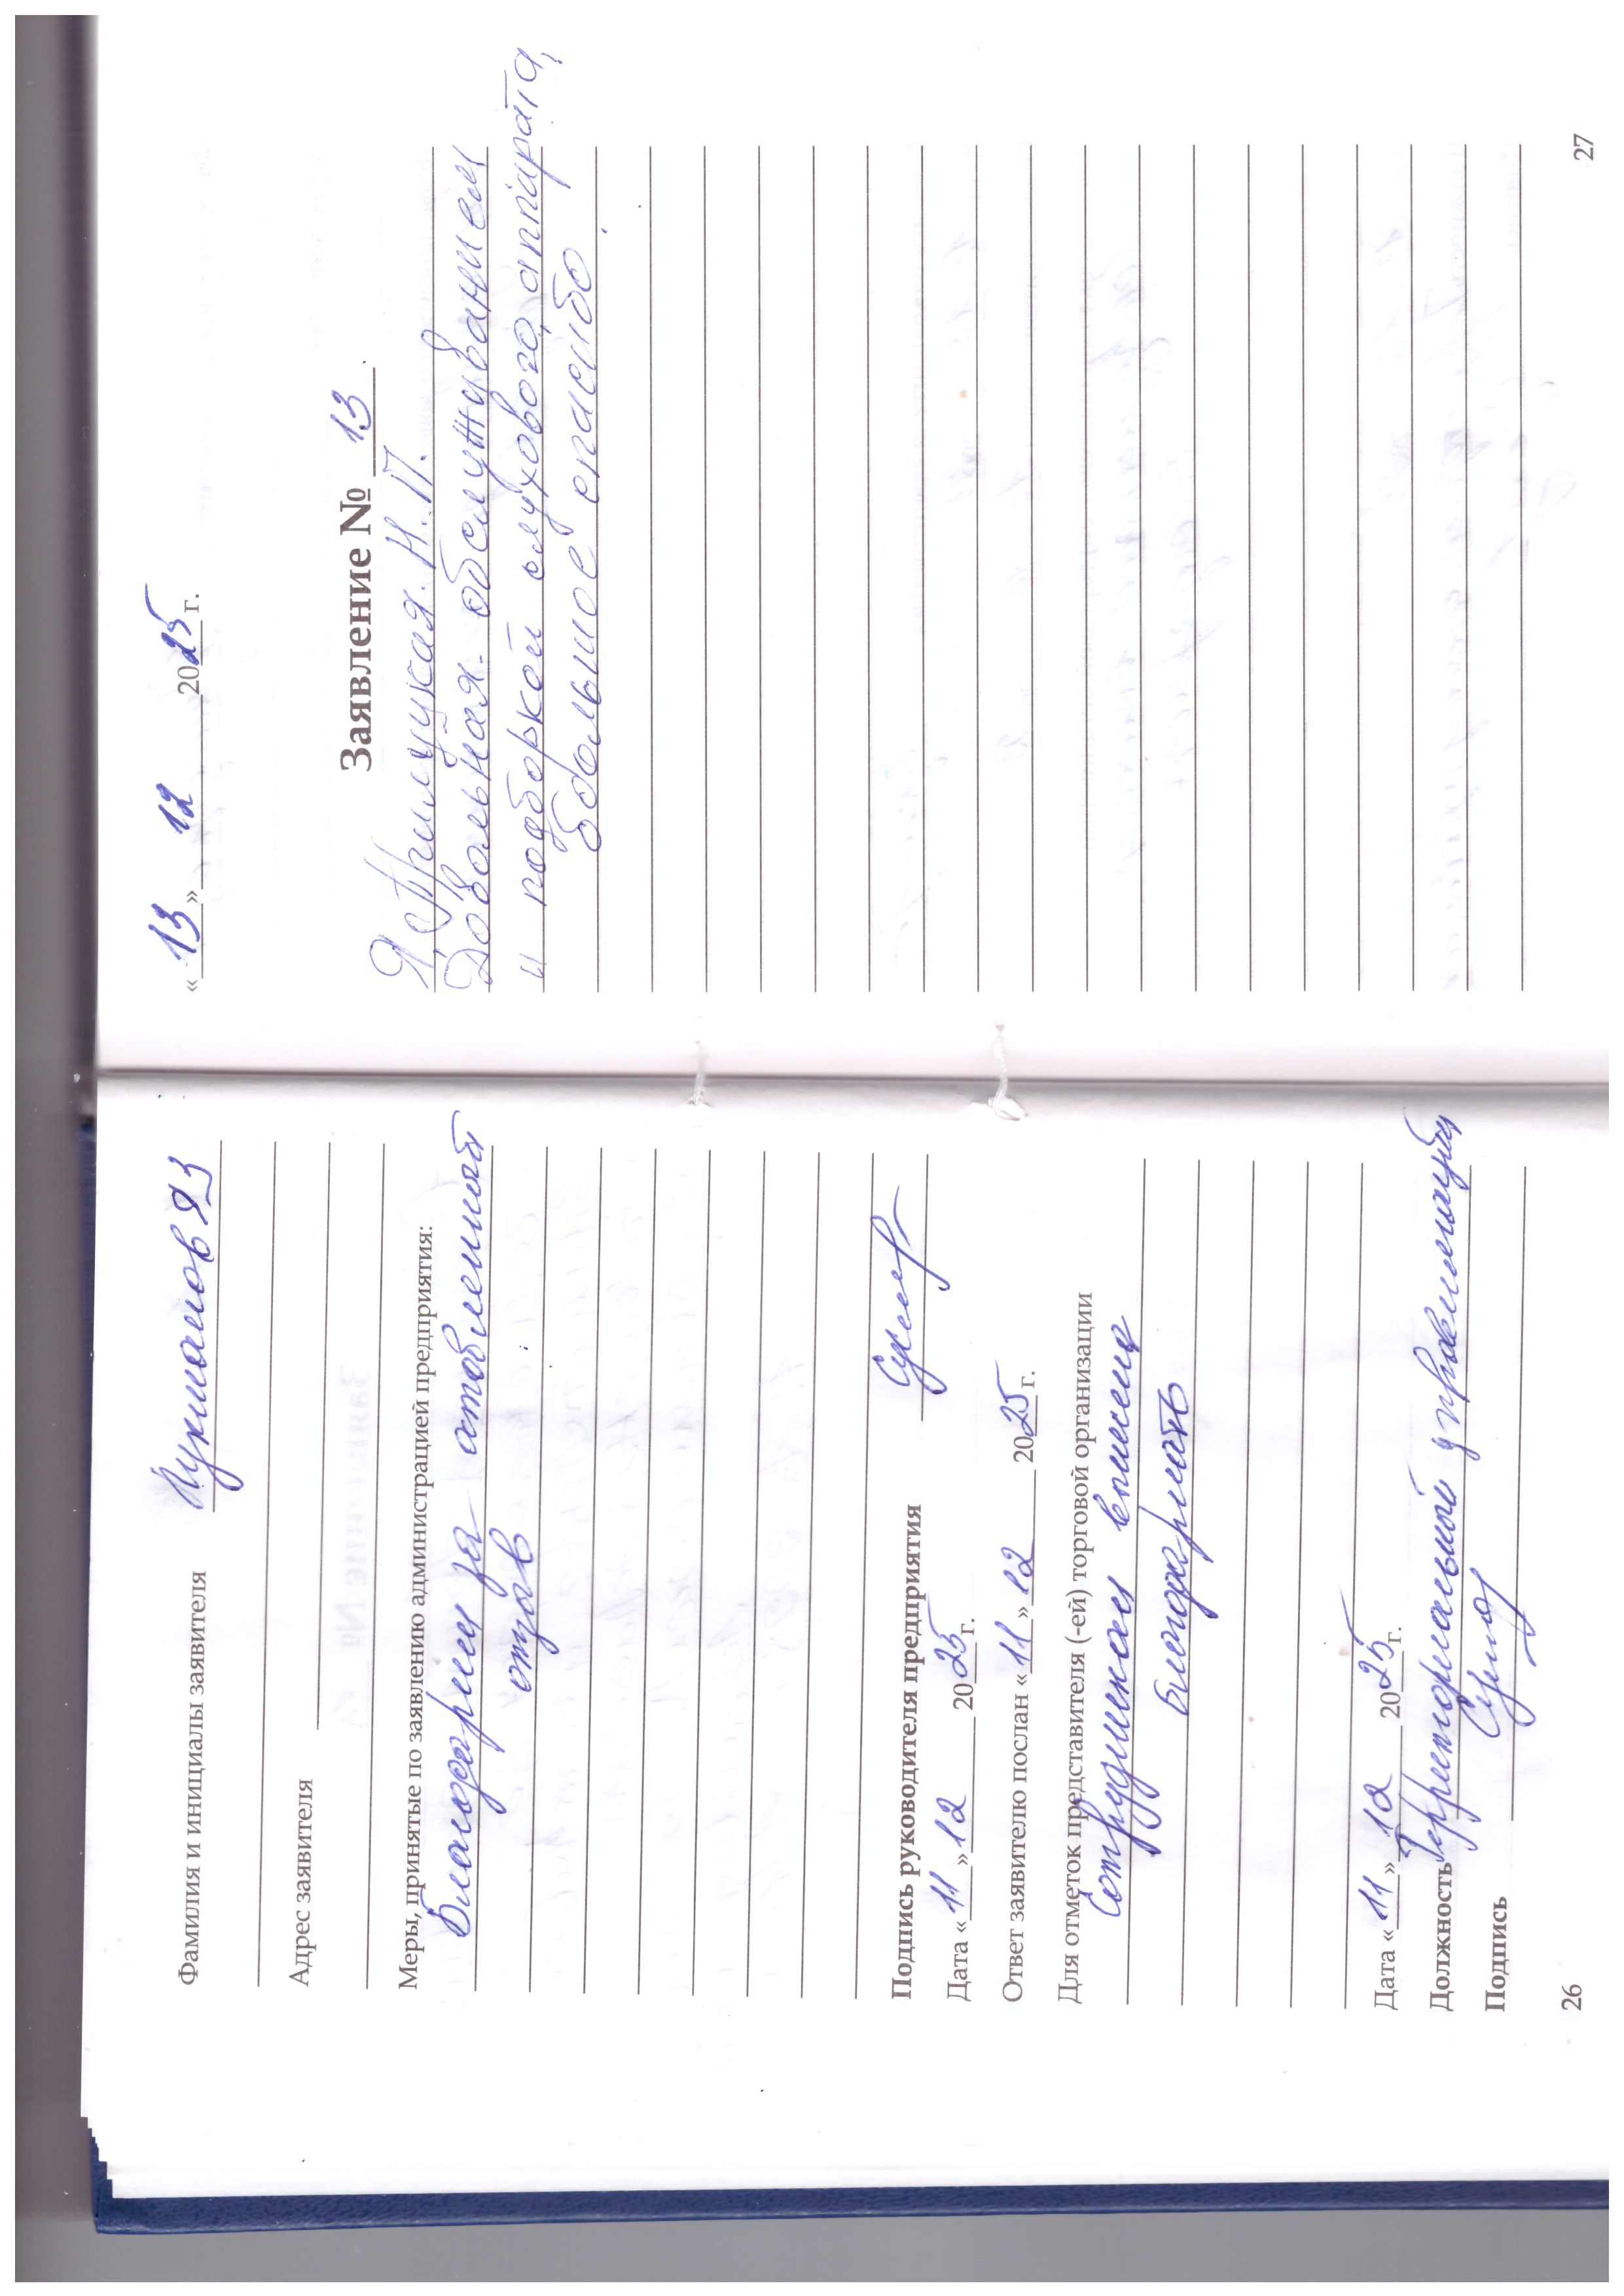 Фамилия и инициалы заявителя Лукманов ЯЗ
Адрес заявителя
Меры, принятые по заявлению администрацией предприятия:
Благодарим за оставленный
отзыв
Подпись руководителя предприятия
Дата «11» 12 2025 г.
Ответ заявителю послан «11» 12 2025 г.
Для отметок представителя (-ей) торговой организации
Сотрудникам вынесена
благодарность
Дата «11» 12 2025 г.
Должность Территориальный управляющий
Подпись
26
«13» 12 2025 г.
Заявление № 13
Я, Прилуцкая. Н. П.
Довольная. обслуживанием
и подборкой слухового аппарата,
большое спасибо.
27